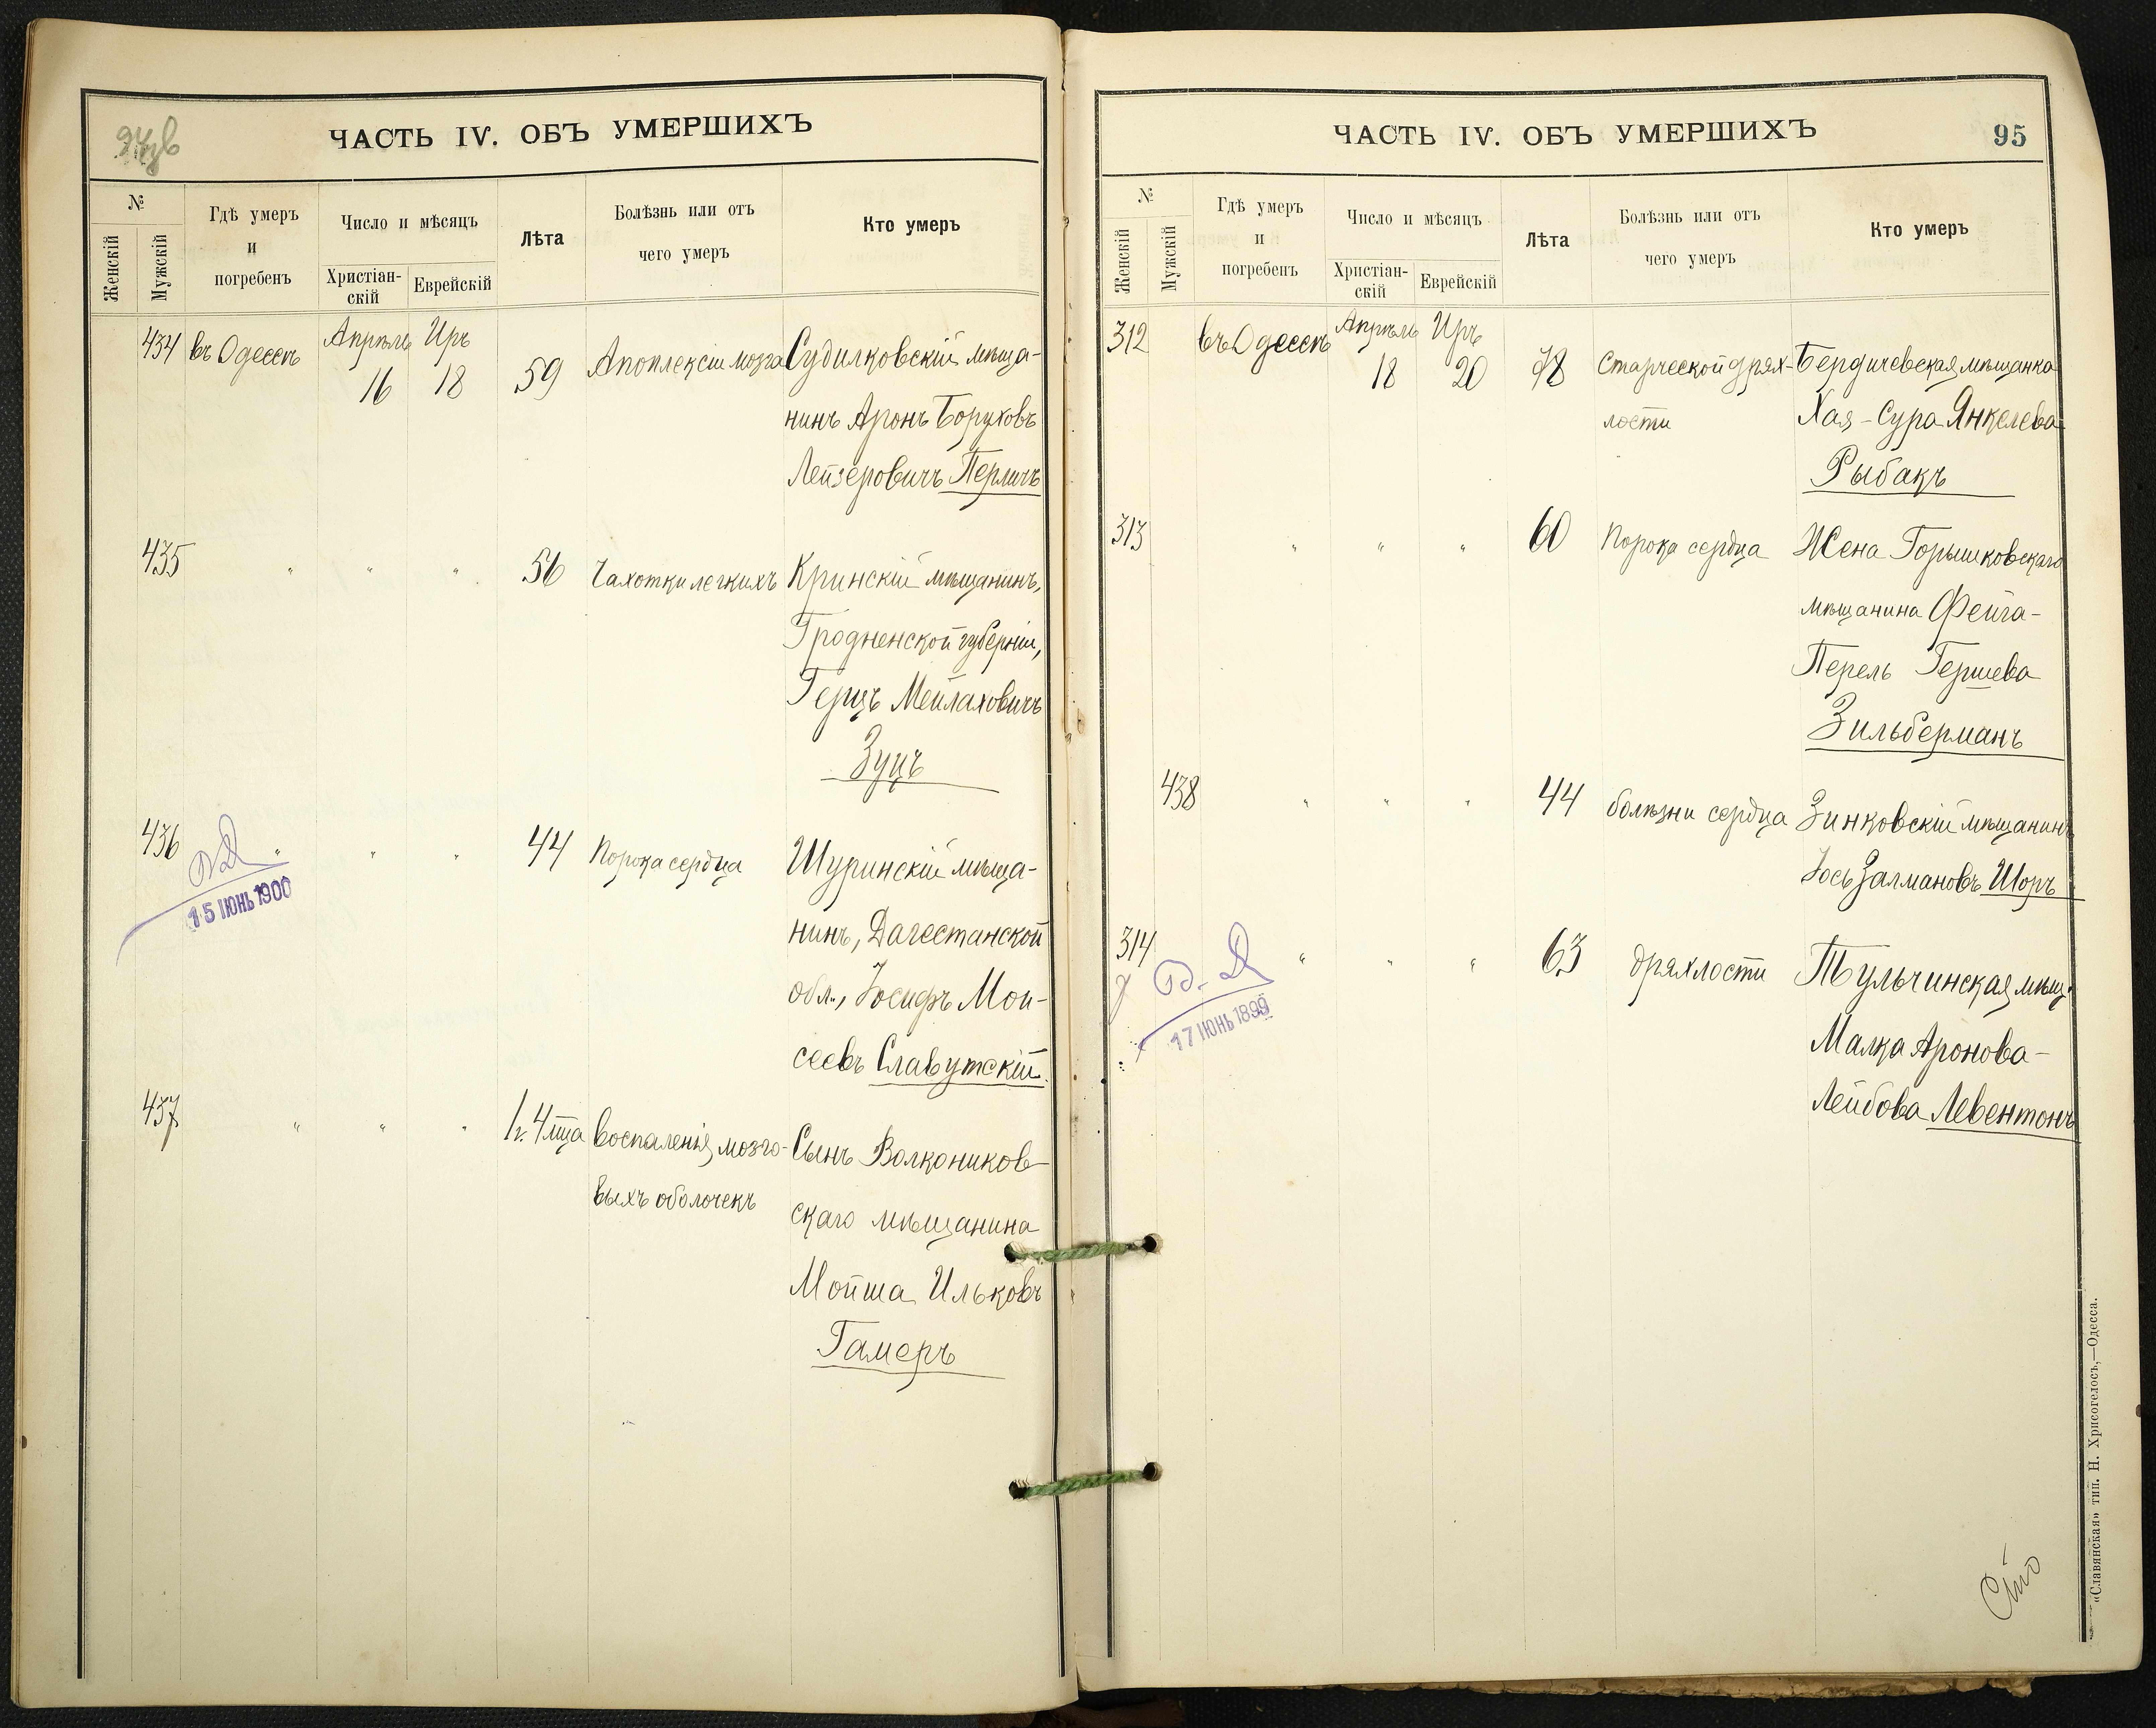 ЧАСТЬ IV. ОБЪ УМЕРШИХЪ
№
Женскій
Мужскій
Гдѣ умеръ
и
погребенъ
Число и мѣсяцъ
Христіан-
скій
Еврейскій
Лѣта
Болѣзнь или отъ
чего умеръ
Кто умеръ
434 въ Одессѣ Апрѣль 16 Иръ 18 59 Апоплексіи мозга Судилковскій мѣща-
нинъ Аронъ Боруховъ
Лейзеровичъ Перличъ
435 " " " 56 Чахотки легкихъ Кринскій мѣщанинъ,
Гродненской губерніи,
Герцъ Мейлаховичъ
Зуцъ
436 " " " 44 Порока сердца Шуринскій мѣща-
15 ІЮНЬ 1900
нинъ, Дагестанской
обл., Іосифъ Мои-
сеевъ Славутскій.
437 " " " 1 г. 4 мца Воспаленія мозго- Сынъ Волкоников-
выхъ оболочекъ
скаго мѣщанина
Мойша Ильковъ
Гамеръ
ЧАСТЬ IV. ОБЪ УМЕРШИХЪ
95
№
Женскій
Мужскій
Гдѣ умеръ
и
погребенъ
Число и мѣсяцъ
Христіан-
скій
Еврейскій
Лѣта
Болѣзнь или отъ
чего умеръ
Кто умеръ
312 въ Одессѣ Апрѣль 18 Иръ 20 78 Старческой дрях- Бердичевская мѣщанка
лости Хая-Сура Янкелева
Рыбакъ
313 " " " 60 Порока сердца Жена Горышковскаго
мѣщанина Фейга-
Перель Гершева
Зильберманъ
438 " " " 44 болѣзни сердца Зинковскій мѣщанинъ
Іось Залмановъ Шоръ
314 " " " 63 дряхлости Тульчинская мѣщ.
17 ІЮНЬ 1899
Малка Аронова-
Лейбова Левентонъ
«Славянская» тип. Н. Хрисогелосъ,—Одесса.